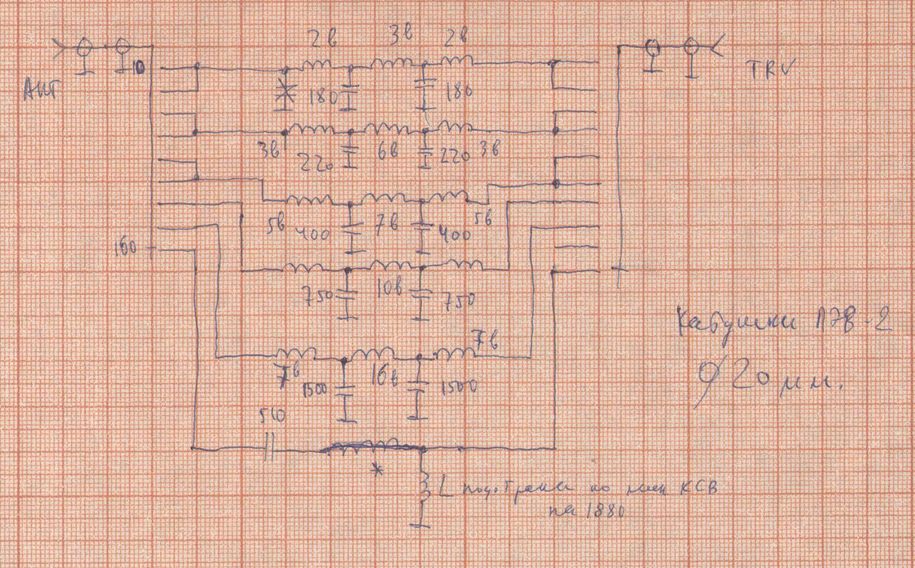 2в 3в 2в
АНТ 10 180 180 TRV
3в 220 6в 220 3в
5в 400 7в 400 5в
160
750 10в 750
Катушки ПЭВ-2
7в 1500 16в 1500 7в
⌀20 мм.
510
*
L подобрана по мин КСВ
на 1880